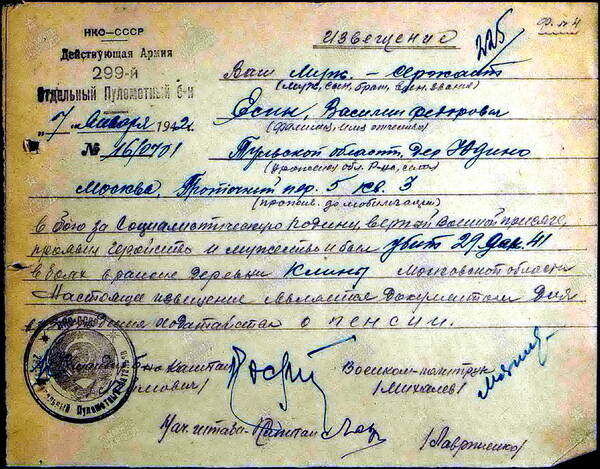 НКО–СССР
Действующая Армия
299-й
Отдельный Пулеметный б-н
"7" Января 1942 г.
№ 16/0701
Ф. № 4
Извещение
225
Ваш Муж – сержант
(муж, сын, брат, воен. звание)
Есин, Василий Федорович
(фамилия, имя отчество)
Тульской области, дер. Юдино
Москва, Проточный пер. 5 кв. 3
(прожив. до мобилизации)
в бою за Социалистическую Родину, верный военной присяге,
проявив геройство и мужество и был убит 27 Дек. 41
в боях в районе деревни Клины Московской области
Настоящее извещение является документом для
ходатайства о пенсии.
б-на Капитан
Военком-политрук
/Михалев/
Нач. штаба-Капитан
/Лавриненко/